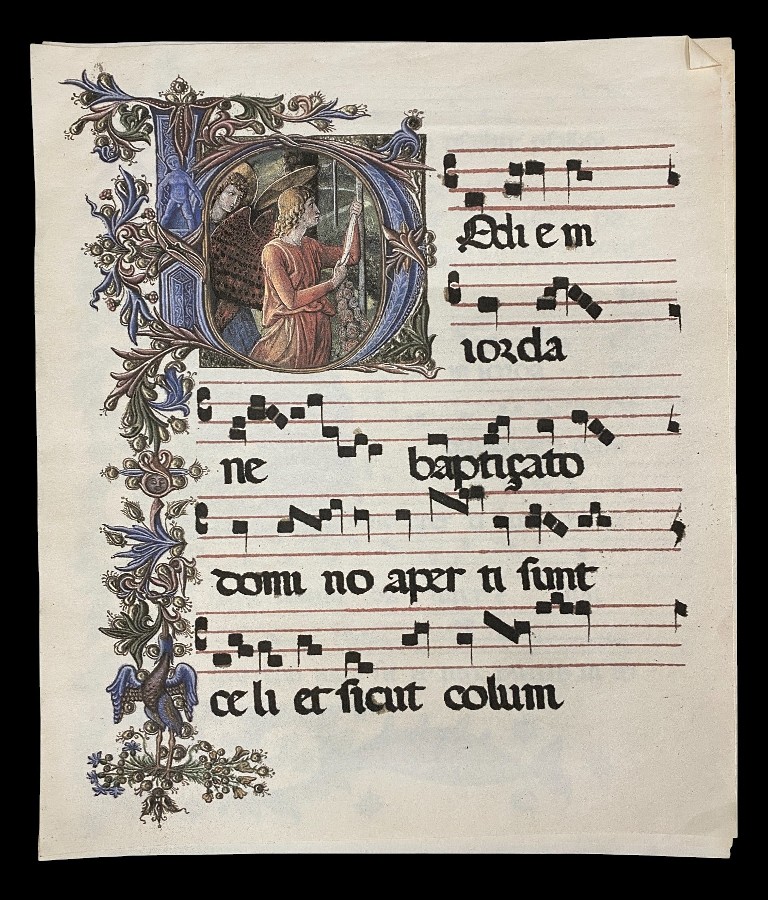 HOdi e in
iorda
ne baptiçato
domi no aper ti sunt
ce li et sicut colum